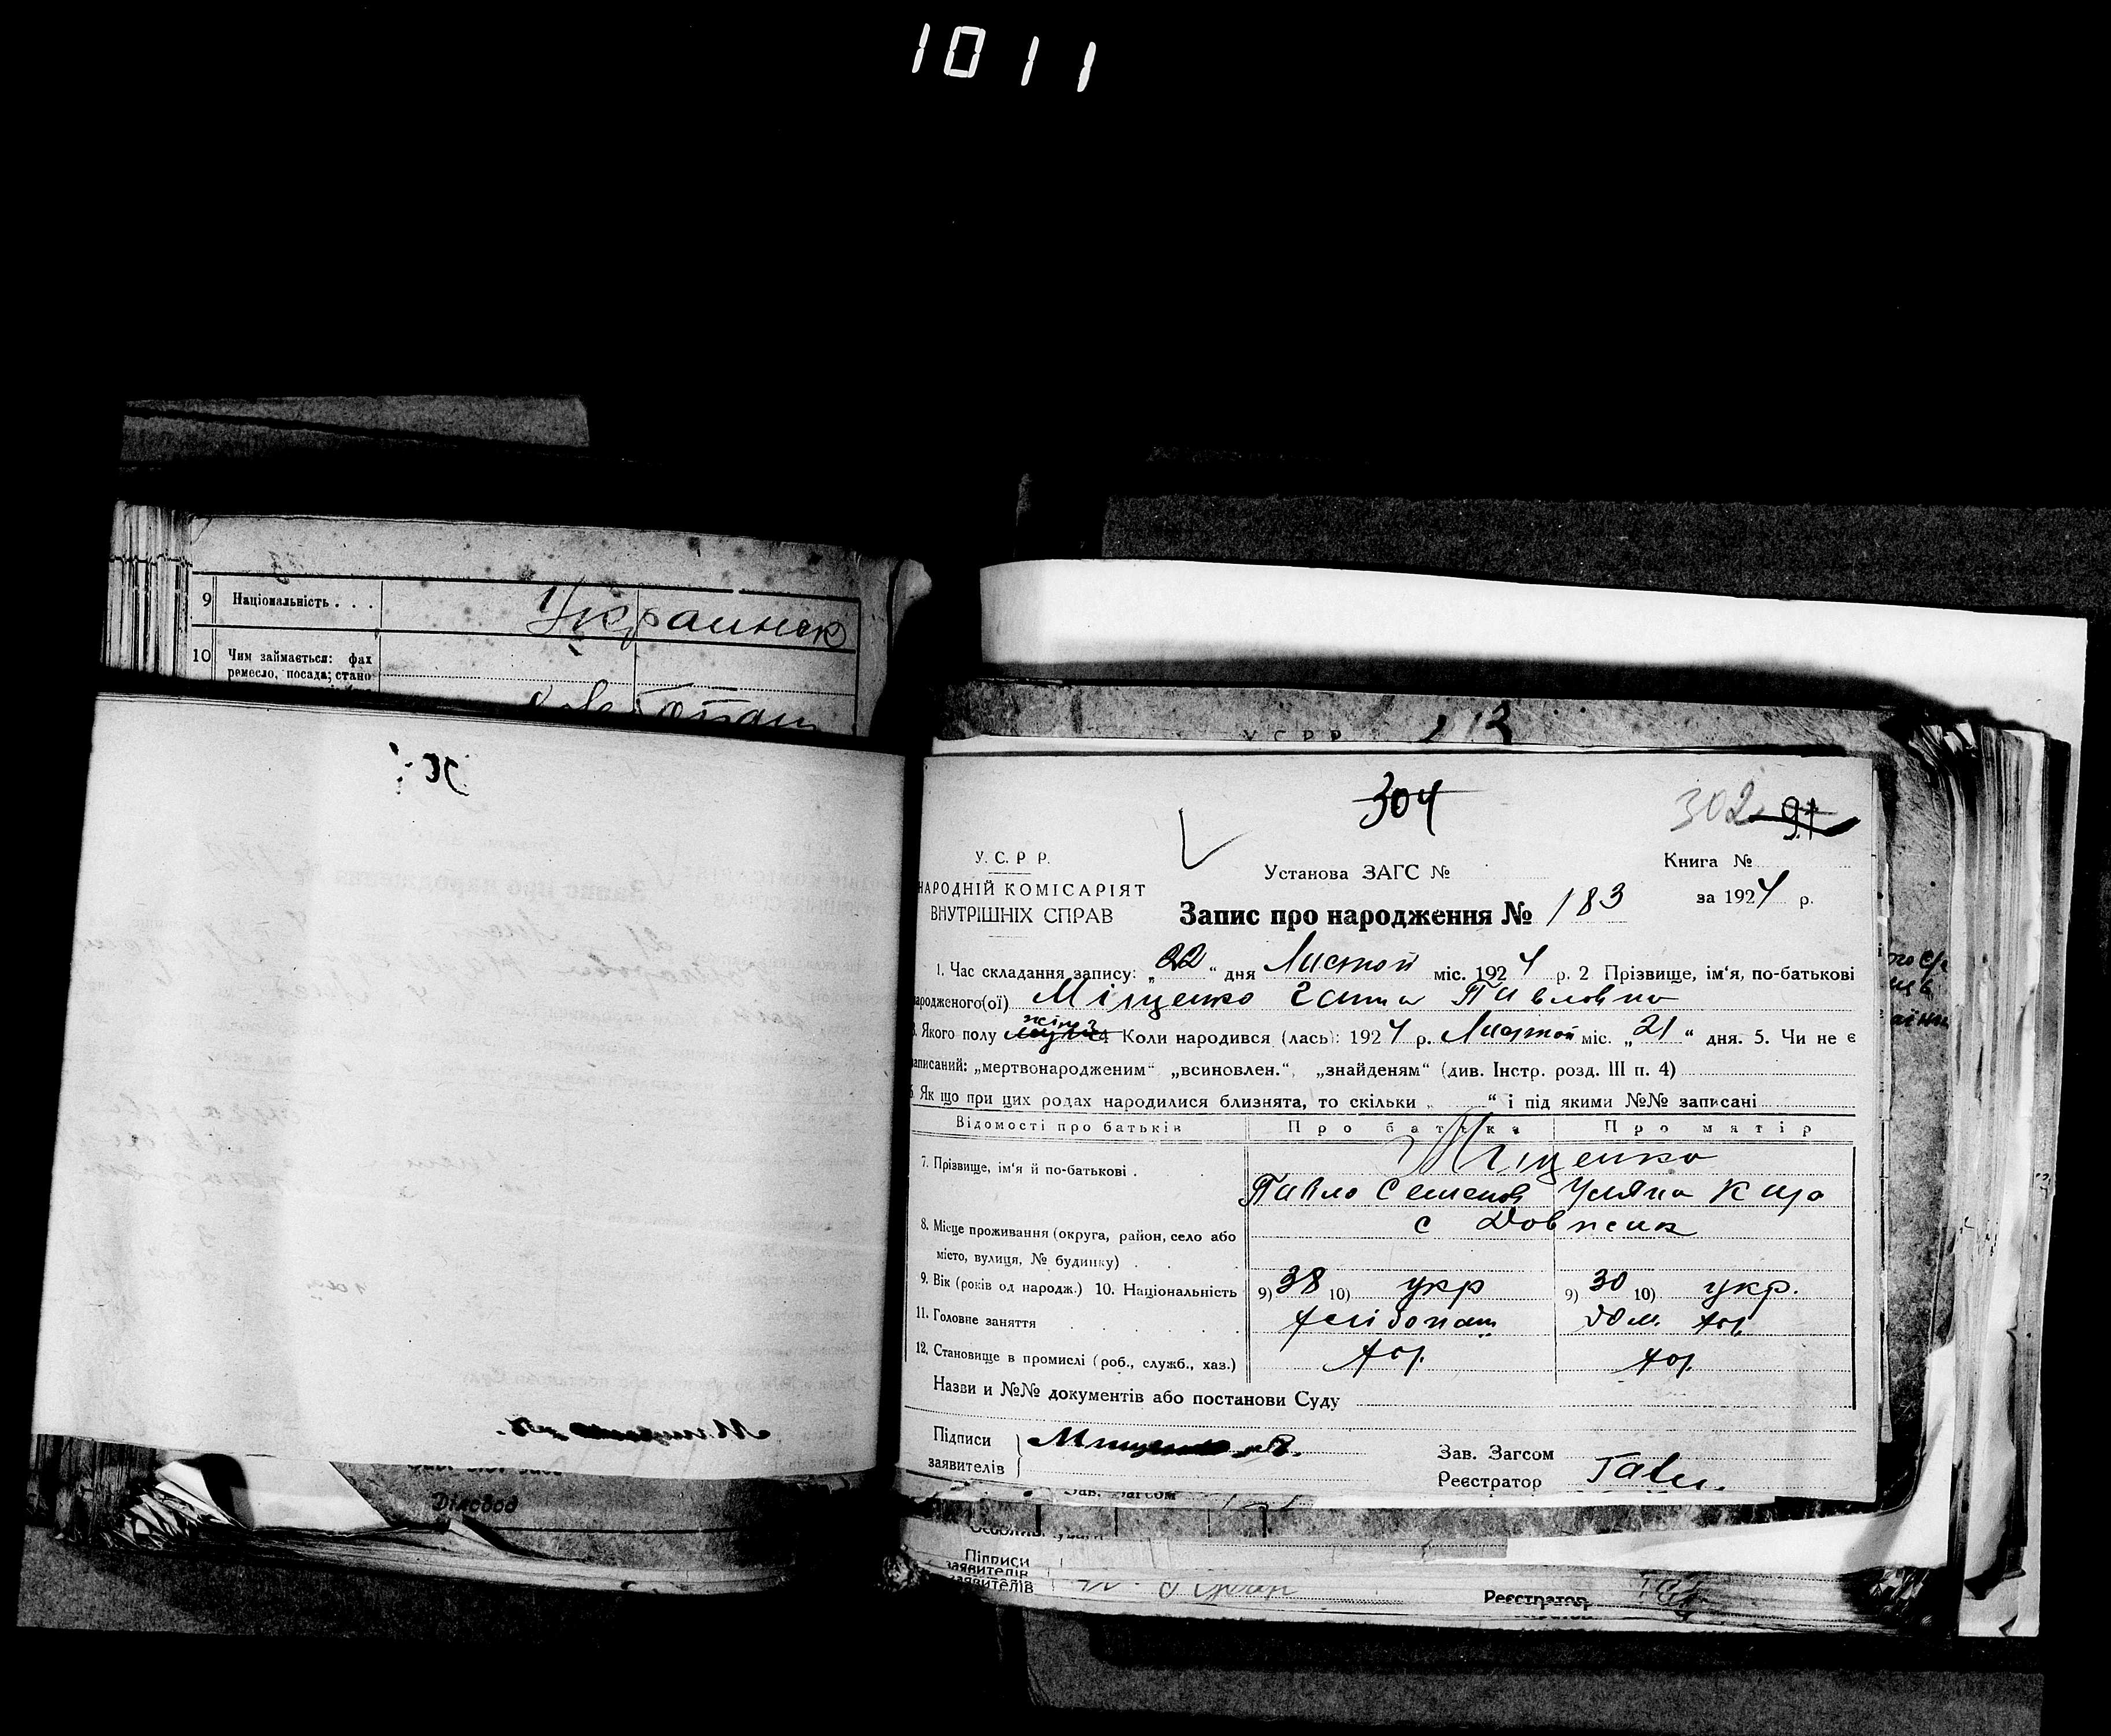 1011
9 Національність . . .
Украинск
10 Чим займається: фах
ремесло, посада; стано
Діловод
У С Р Р
304
302 91
У. С. Р Р.
НАРОДНІЙ КОМІСАРІЯТ
ВНУТРІШНІХ СПРАВ
Установа ЗАГС №
Книга №
за 1924 р.
Запис про народження № 183
1. Час складання запису: „22“ дня Листоп міс. 1924 р. 2 Прізвище, ім‘я, по-батькові
народженого(ої) Міщенко Ганна Павловна
3. Якого полу жіноч 4 Коли народився (лась): 1924 р. Листоп міс. „21“ дня. 5. Чи не є
записаний: „мертвонародженим“ „всиновлен.“, „знайденям“ (див. Інстр. розд. III п. 4)
6. Як що при цих родах народилися близнята, то скільки „ “ і під якими №№ записані
Відомості про батьків Про батька Про матір
7. Прізвище, ім‘я й по-батькові . Міщенко
Павло Семенов Уляна
8. Місце проживання (округа, район, село або
місто, вулиця, № будинку) . с Довжик
9. Вік (років од народж.) 10. Національність 9) 38 10) укр 9) 30 10) укр.
11. Головне заняття хлібопаш дом. хоз.
12. Становище в промислі (роб., служб., хаз.) хоз. хоз.
Назви и №№ документів або постанови Суду
Підписи
заявителів
Зав. Загсом
Реєстратор
Зав. Загсом
Підписи
заявителів
заявителів
Реєстратор